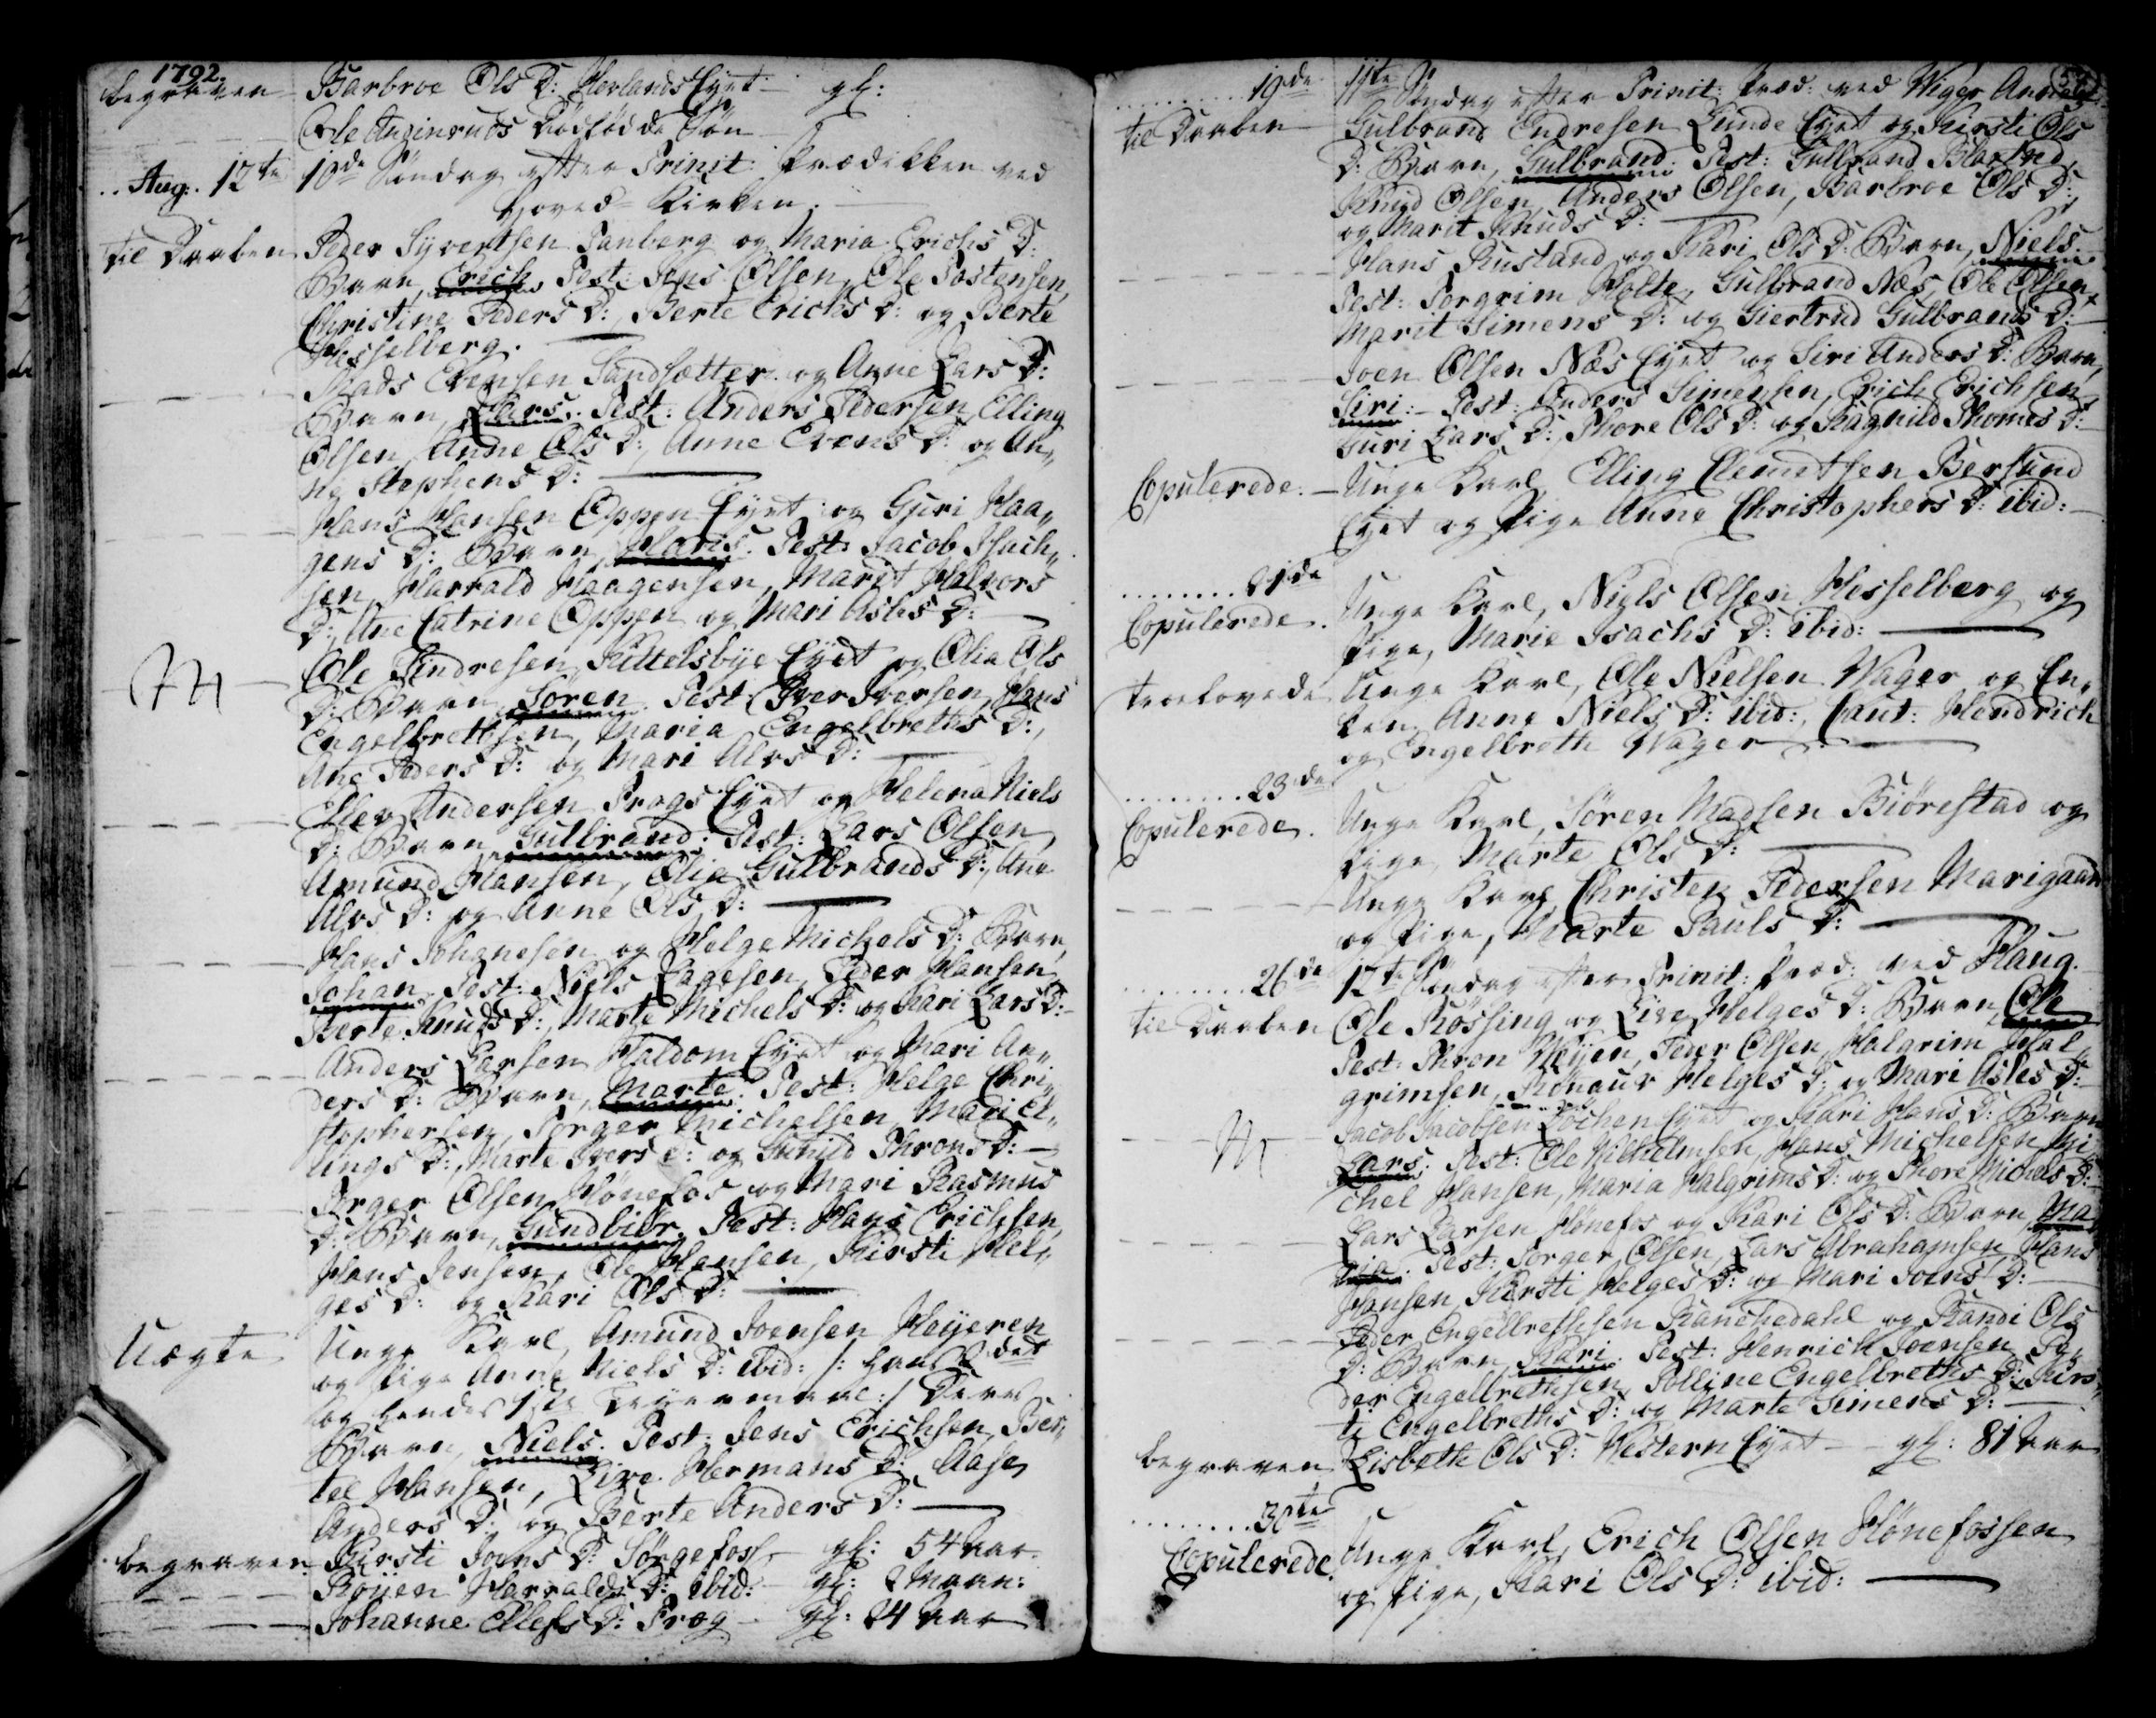 1792.
begraven Barbroe Ols D: Hovlands Eyet gl:
Ole Anginruds Dödfödde Sön
Aug. 12te 10de Söndag efter Trinit: Prædikken ved
Hoved-Kirken.
til Daaben Peder Syvertsen Tanberg og Maria Erichs D:
Barn, Erich. Test: Jens Olsen, Ole Tostensen,
Christine Peders D:, Berte Erichs D: og Berte
Hesselberg.
Mads Evensen Sandsætter og Anne Lars D:
Barn, Lars. Test: Anders Pedersen, Elling
Olsen, Anne Ols D:, Anne Evens D: og An„
ne Stephens D:
Hans Hansen Oppen Eyet og Guri Haa„
gens D: Barn, Hans. Test: Jacob Isach„
sen, Harrald Haagensen, Marit Halvors
D:, Ane Catrine Oppen og Mari Asles D:
Ole Findresen Kittelsbye Eyet og Olia Ols
D: Barn, Sören. Test: Iver Iversen, Hans
Engelbrettsen, Maria Engelbreths D:,
Ane Peders D: og Mari Alvs D:
Ellev Andersen Prags Eyet og Helena Niels
D: Barn, Gulbrand. Test: Lars Olsen,
Amund Hansen, Olia Gulbrands D:, Ane
Alvs D: og Anne Ols D:
Hans Johanesen og Helge Michels D: Barn,
Johan. Test: Niels Lagesen, Peder Hansen,
Berte Knuds D:, Marte Michels D: og Kari Lars D:
Anders Larsen Haldom Eyet og Mari An„
ders D: Barn, Marte. Test: Helge Chri„
stophersen, Torger Michelsen, Mari El„
lings D:, Marte Ivers D: og Gunild Throns D:
Torger Olsen Hönefos og Mari Rasmus
D: Barn, Gundbiör. Test: Hans Erichsen,
Hans Jensen, Ole Hansen, Kirsti Hel„
ges D: og Kari Ols D:
Uægte Unge Karl Amund Joensen Heyeren
og Pige Anne Niels D: ibid: /: hans 2det
og hendes 1ste Leyermaal :/ Deres
Barn, Niels. Test: Jens Erichsen, Ber„
tel Hansen, Live Hermans D:, Aase
Anders D: og Berte Anders D:
begraven Kirsti Joens D: Sörgefoss gl: 54 Aar
Boyen Harralds D: ibid: gl: 2 Maan:
Johanne Ellefs D: Prag gl: 24 Aar
19de 11te Söndag efter Trinit: Præd: ved Wiger Annexet
til Daaben Gulbrand Endresen Lunde Eyet og Kirsti Ols
D: Barn, Gulbrand. Test: Gulbrand Blaxlnd,
Knud Olsen, Anders Olsen, Barbroe Ols D:,
og Marit Knuds D:
Hans Rustand og Kari Ols D: Barn, Niels.
Test: Torgrim Holte, Gulbrand Næs, Ole Olsen,
Marit Simens D: og Giertrud Gulbrands D:
Joen Olsen Næs Eyet og Siri Anders D: Barn,
Siri: Test: Anders Simensen, Erich Erichsen,
Guri Lars D:, Thore Ols D: og Ragnild Thomes D:
Copulerede. Unge Karl Elling Clemetsen Bersund
Eyet og Pige Anne Christophers D: ibid:
21de
Copulerede. Unge Karl, Niels Olsen Hesselberg og
Pige, Marie Isachs D: ibid:
Troelovede Unge Karl, Ole Nielsen Wager og En„
ken Anne Niels D: ibid:, Caut: Hendrich
og Engelbreth Wager
23de
Copulerede. Unge Karl, Sören Madsen Biörestad og
Pige Marte Ols D:
Unge Karl Christen Pedersen Marigaard
og Pige, Marte Pauls D:
26de 12te Söndag efter Trinit: Præd: ved Haug.
til Daaben Ole Rössing og Live Helges D: Barn, Ole
Test: Thron Weyen, Peder Olsen, Halgrim Hal„
grimsen, Rönaur Helges D: og Mari Asles D:
Jacob Jacobsen Lochen Eyet og Kari Hans D: Barn
Lars. Test: Ole Wilhelmsen, Hans Michelsen, Mi„
chel Hansen, Maria Halgrims D: og Thore Michels D:
Lars Larsen Hönefos og Kari Ols D: Barn, Ma„
ria. Test: Torger Olsen, Lars Abrahamsen, Hans
Hansen, Kirsti Helges D: og Mari Joens D:
Peder Engelbrethsen Ranchedahl og Randi Ols
D: Barn, Kari. Test: Henrich Joensen, Pe„
der Engelbrethsen, Polline Engelbreths D:, Kirs„
ti Engelbreths D: og Marte Simens D:
begraven Lisbeth Ols D: Western Eyet gl: 81 Aar
30te
Copulerede. Unge Karl, Erich Olsen Hönefossen
og Pige, Kari Ols D: ibid: